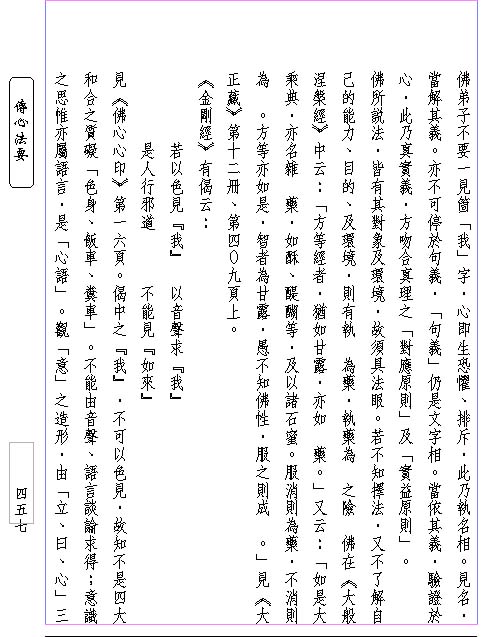 佛弟子不要一見箇「我」字，心即生恐懼、排斥，此乃執名相。見名，
當解其義。亦不可停於句義，「句義」仍是文字相。當依其義，驗證於
心，此乃真實義，方吻合真理之「對應原則」及「實益原則」。
佛所說法，皆有其對象及環境，故須具法眼。若不知擇法，又不了解自
己的能力、目的、及環境，則有執　為藥，執藥為　之險　佛在《大般
涅槃經》中云：「方等經者，猶如甘露，亦如　藥。」又云：「如是大
乘典，亦名雜　藥，如酥、醍醐等，及以諸石蜜。服消則為藥，不消則
為　。方等亦如是，智者為甘露，愚不知佛性，服之則成　。」見《大
正藏》第十二冊、第四０九頁上。
《金剛經》有偈云：
若以色見『我』　以音聲求『我』
是人行邪道　　不能見『如來』
見《佛心心印》第一六頁。偈中之『我』，不可以色見，故知不是四大
和合之質礙「色身、飯車、糞車」。不能由音聲、語言談論求得；意識
之思惟亦屬語言，是「心語」。觀「意」之造形，由「立、曰、心」三
傳心法要
四五七